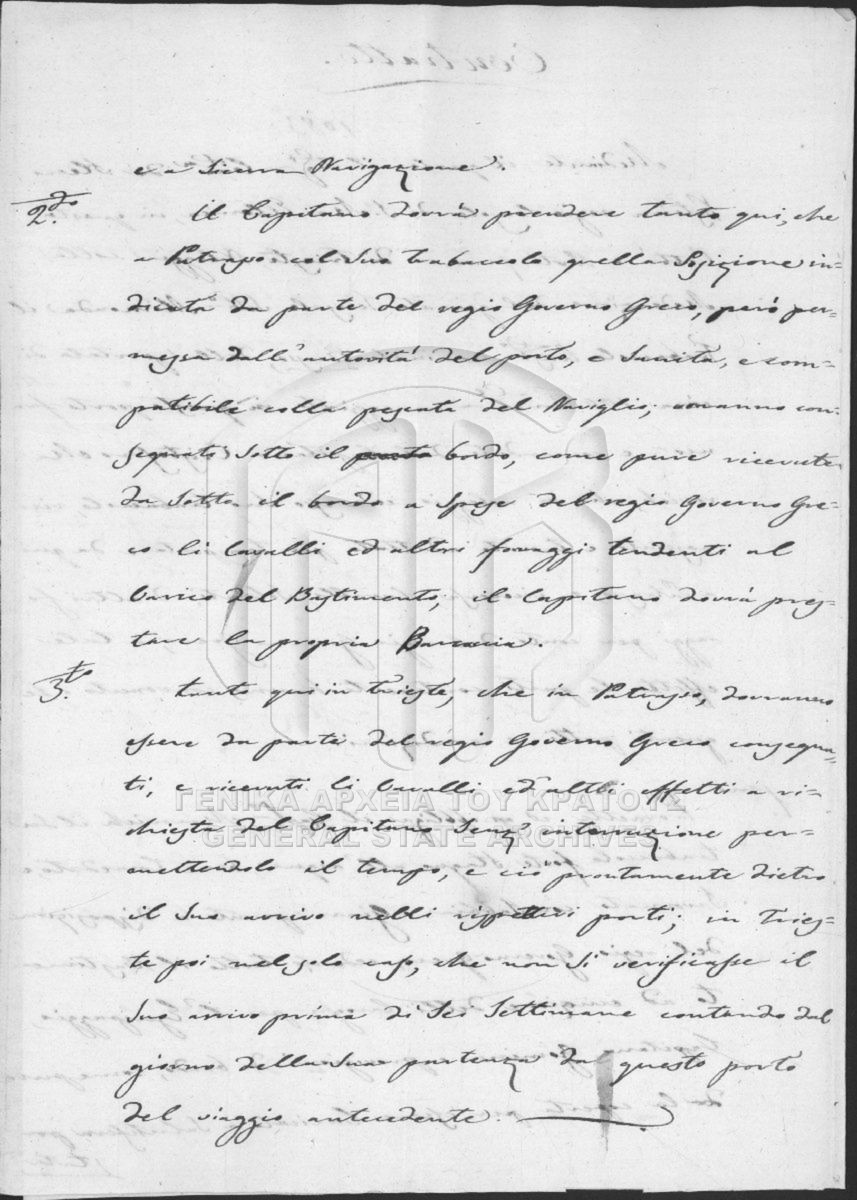 e a sicura Navigazione.
2do. Il Capitano dovrà prendere tanto qui, che
a Patrasso col suo trabaccolo quella Posizione in-
dicata da parte del regio Governo Greco, però per-
messa dall'autorità del porto, e Sanità, e com-
patibile colla pescata del Naviglio; saranno con-
segnati sotto il bordo, come pure ricevute
da sotto il bordo a spese del regio Governo Gre-
co li Cavalli ed altri foraggi tendenti al
Carico del Bastimento; il Capitano dovrà pres-
tare la propria Barcaccia.
3to. Tanto qui in Trieste, che in Patrasso, dovranno
essere da parte del regio Governo Greco consegna-
ti, e ricevuti li Cavalli ed altri effetti a ri-
chiesta del Capitano senz' interruzione per-
mettendolo il tempo, e ciò prontamente dietro
il suo arrivo nelli rispettivi porti; in Tries-
te poi nel solo caso, che non si verificasse il
suo arrivo prima di sei settimane contando dal
giorno della sua partenza da questo porto
del viaggio antecedente.
ΓΕΝΙΚΑ ΑΡΧΕΙΑ ΤΟΥ ΚΡΑΤΟΥΣ
GENERAL STATE ARCHIVES